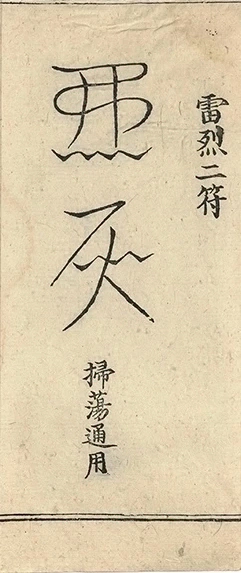 雷烈二符
掃蕩通用